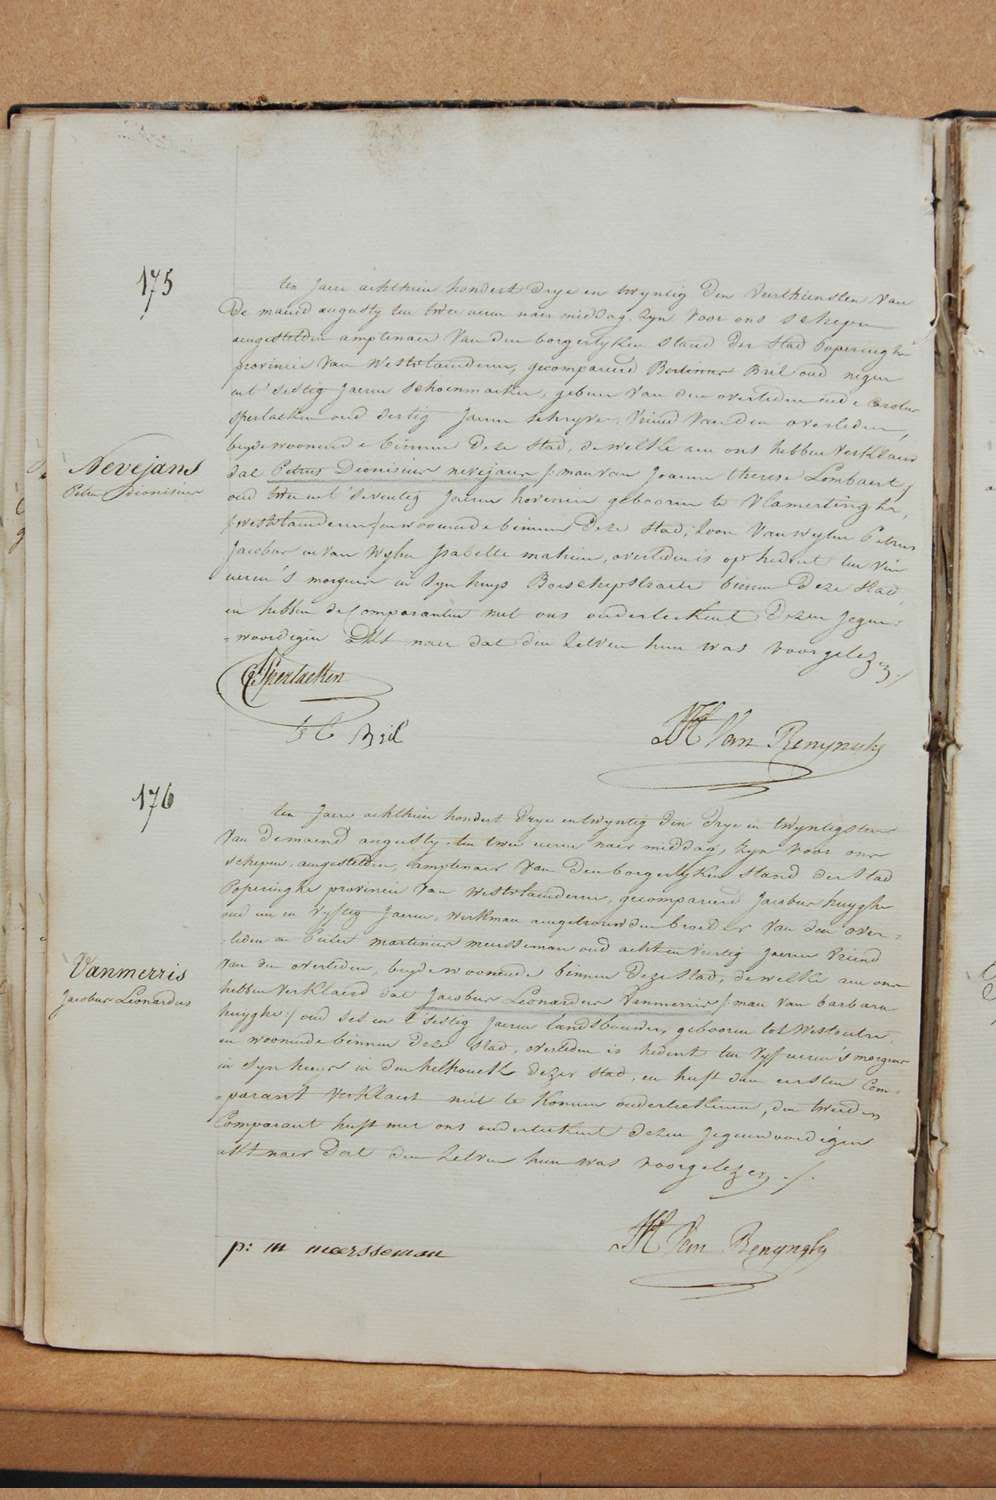 175
ten Jaere achthien hondert drye en twyntig den veerthiensten van
de maend augusty ten twee ueren naer middag, zyn voor ons schepen
aengestelden amptenaer van den borgerlyken stand der stad Poperinghe
provincie van Westvlaenderen, gecompareerd Bril oud negen
en t' sestig Jaeren schoenmaeker, gebuer van den overleden ende Carolus
Sperlaeken oud dertig Jaeren schryver, vriend van den overleden,
beyde woonende binnen deze stad, de welke aen ons hebben verklaerd
Nevejans
Petrus Dionisius
dat Petrus Dionisius nevejans /: man van Joanna therese Lombaert,
oud twee en t' seventig Jaeren hovenier gebooren te Vlamertinghe,
/: westvlaenderen :/ en woonende binnen deze stad, zoon van wylen Petrus
Jacobus en van wylen Isabelle mahieu, overleden is op hedent ten vier
ueren 's morgens in syn huys Boeschepstraete binnen deze stad,
en hebben de Comparanten met ons onderteekent dezen jegen-
=woordigen Akt naer dat den zelven hun was voorgelezen ./
Sperlaeken
Bril
Van Renynghe
176
ten Jaere achthien hondert drye en twyntig den drye en twyntigsten
van de maend augusty ten twee ueren naer middag, zyn voor ons
schepen, aengestelden, amptenaer van den borgerlyken stand der stad
Poperinghe provincie van Westvlaenderen, gecompareerd Jacobus huyghe
oud een en vyftig Jaeren, werkman aengetrouwden broeder van den over-
-leden en Pieter martinus meersseman oud acht en veertig Jaeren vriend
van den overleden, beyde woonende binnen deze stad, de welke aen ons
Vanmerris
Jacobus Leonardus
hebben verklaerd dat Jacobus Leonardus Vanmerris /: man van barbara
huyghe :/ oud ses en t' sestig Jaeren landsbouder, gebooren tot Westoutre,
en woonende binnen deze stad, overleden is hedent ten vyf ueren 's morgens
in syn huis in den helhouck dezer stad, en heeft den eersten Com-
=parant verklaert niet te konnen onderteekenen, den tweeden
Comparant heeft met ons onderteekent dezen jegenwoordigen
akt naer dat den zelven hun was voorgelezen ./.
p: m meersseman
Van Renynghe